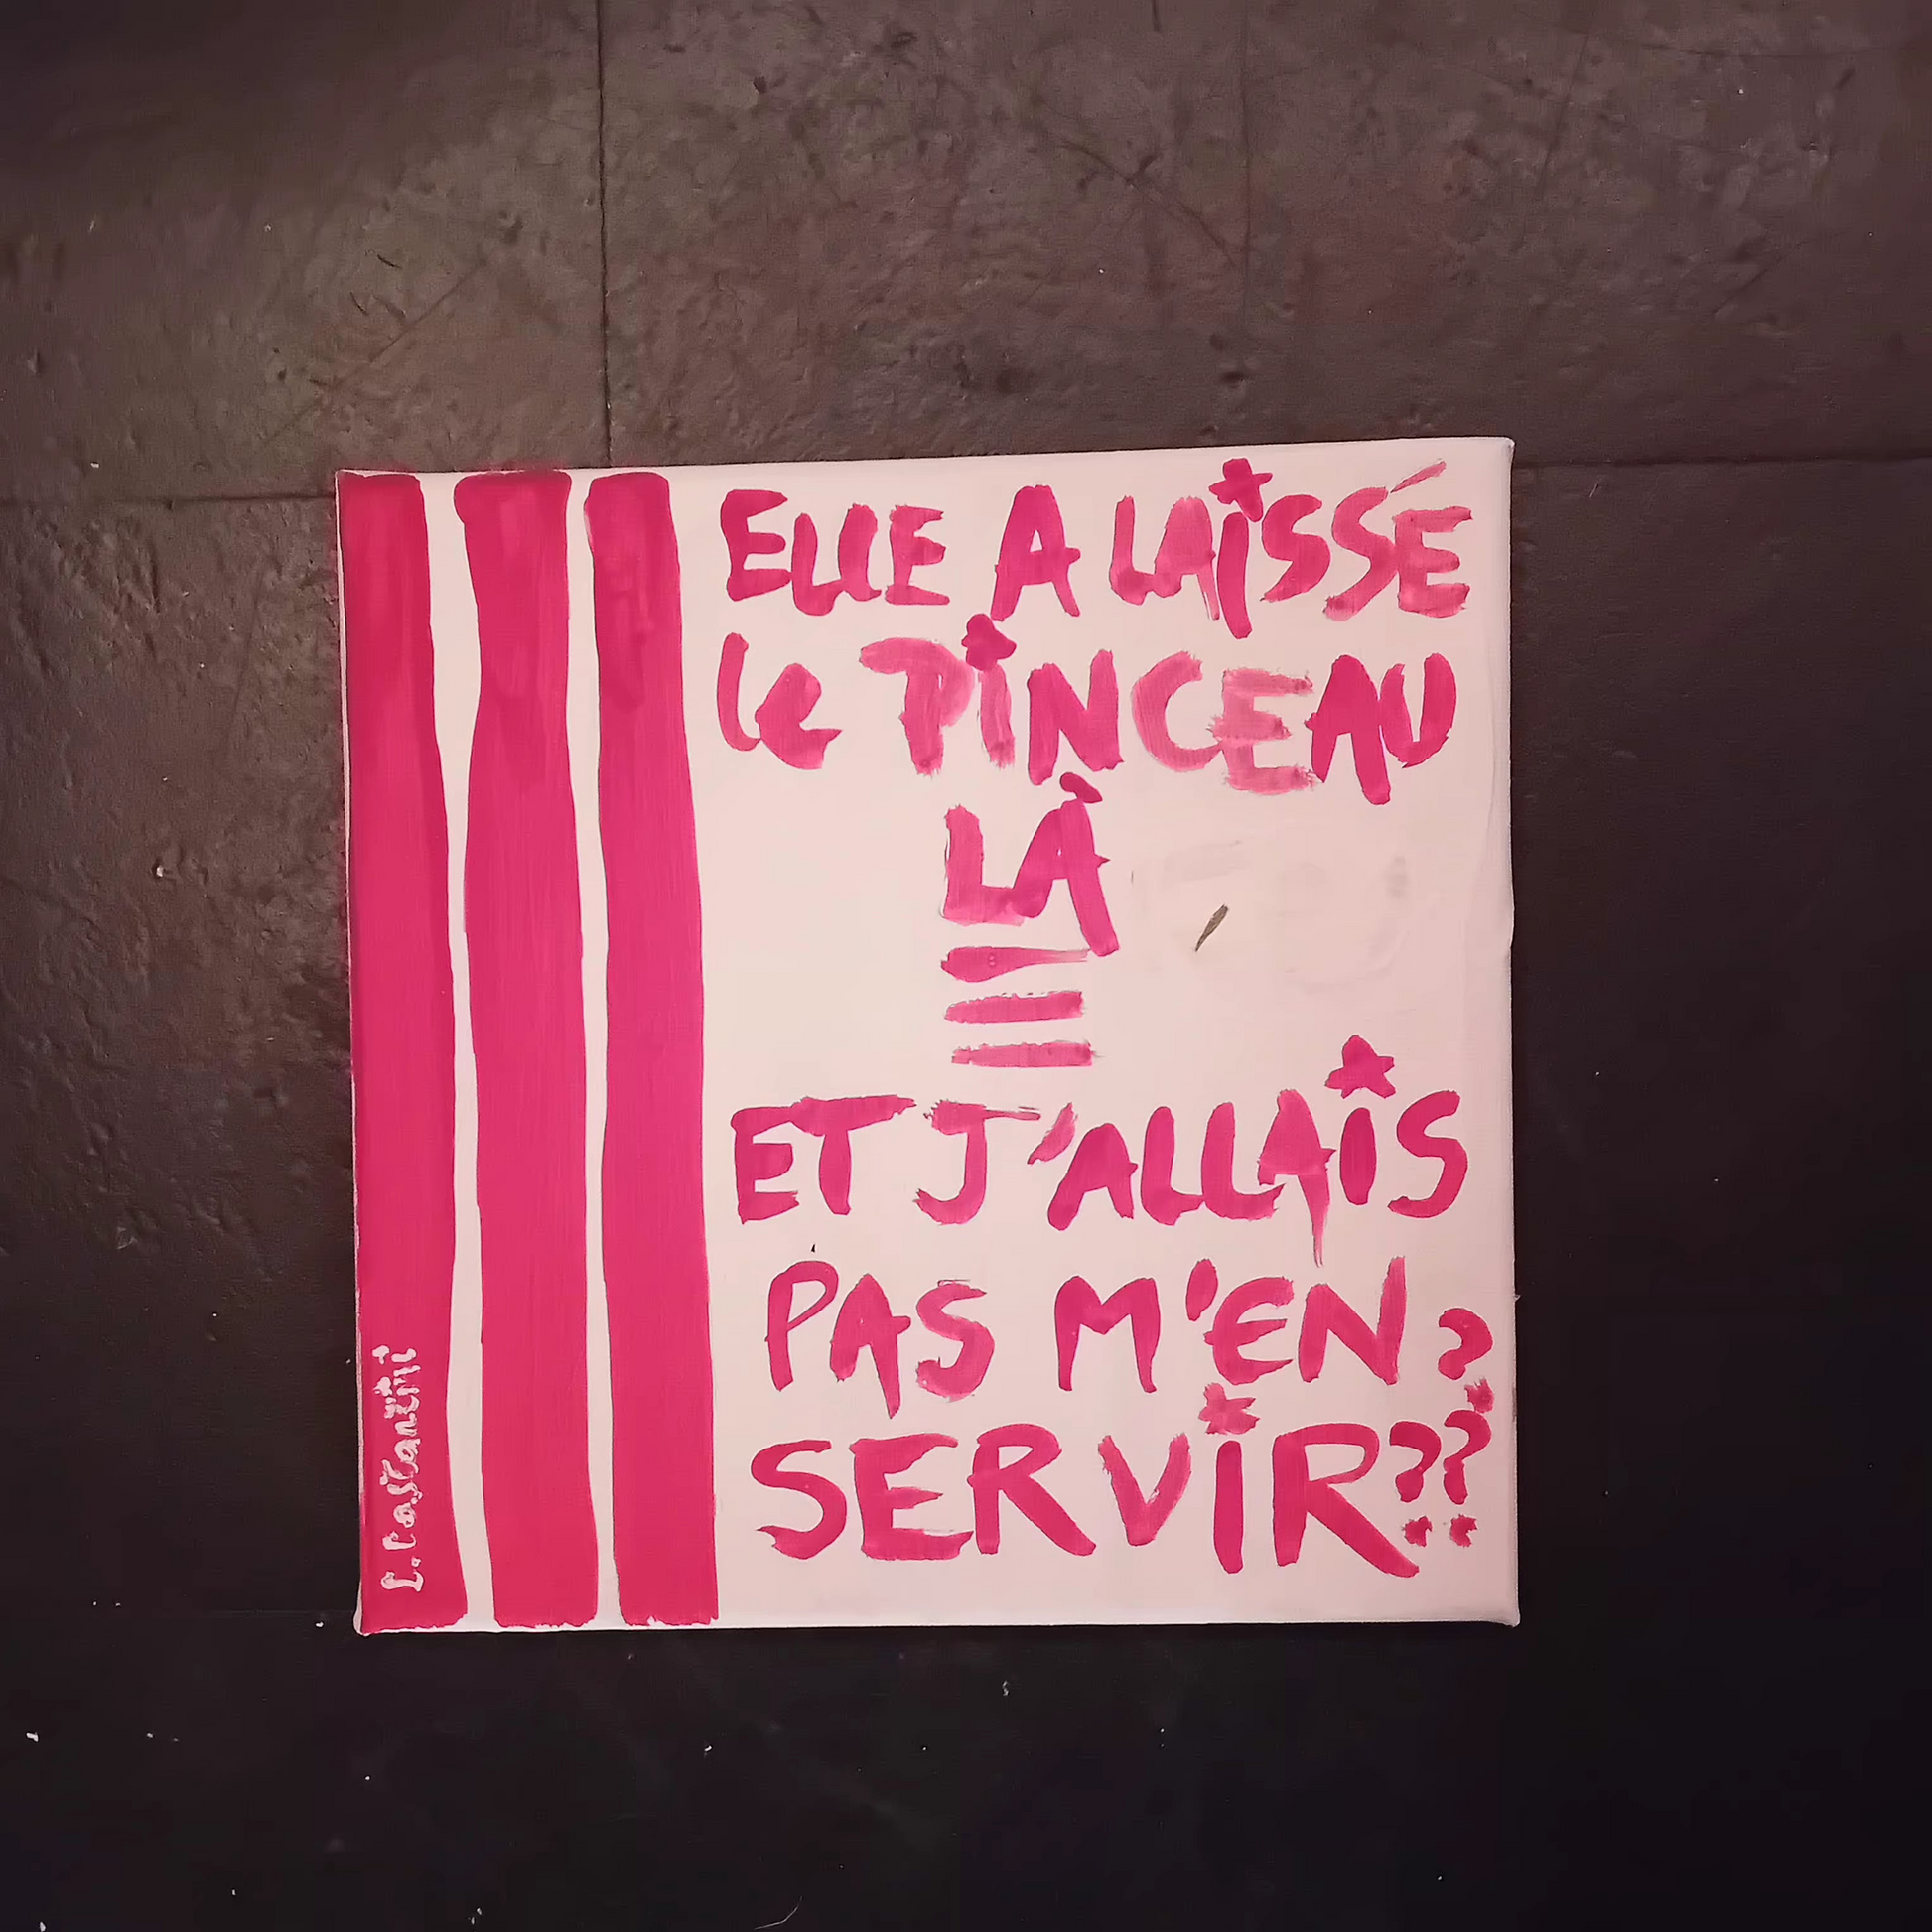 ELLE A LAiSSÉ
le PiNCEAU
LÀ
ET J'ALLAiS
PAS M'EN ?
SERViR ??
L. Castanini